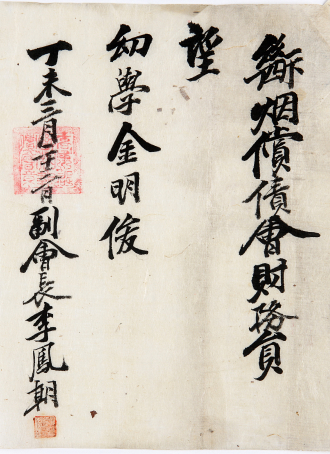 斷烟償債會財務員
望
幼學金明俊
丁未三月二十二日副會長李鳳朝